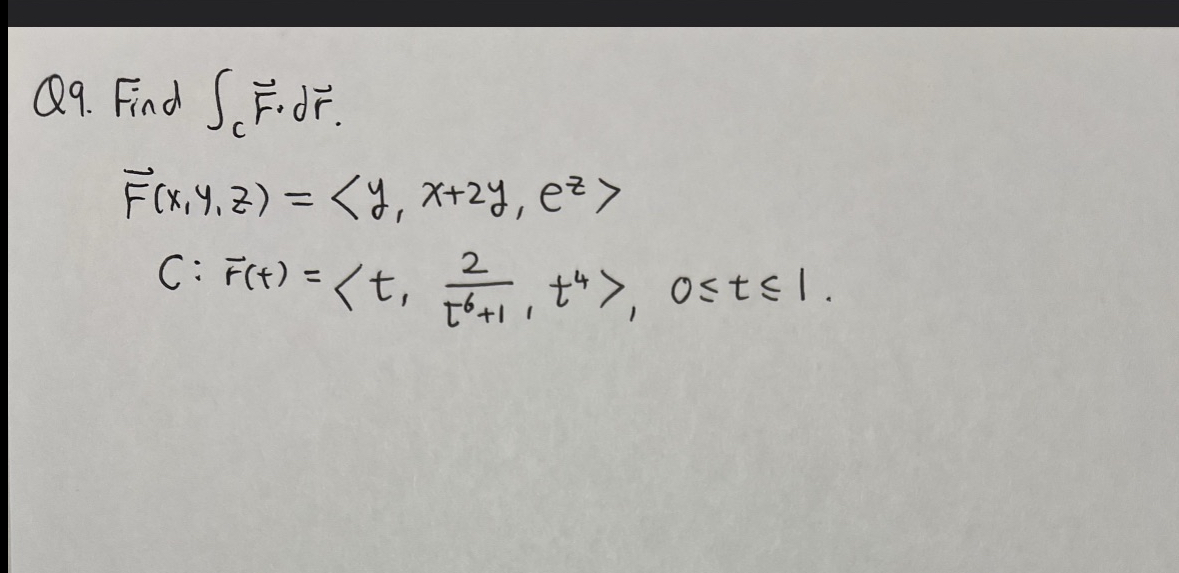 Q9. Find ∫_C F⃗·dr⃗.
F⃗(x,y,z) = <y, x+2y, e^z>
C: r⃗(t) = <t, 2/(t^6+1), t^4>, 0≤t≤1.